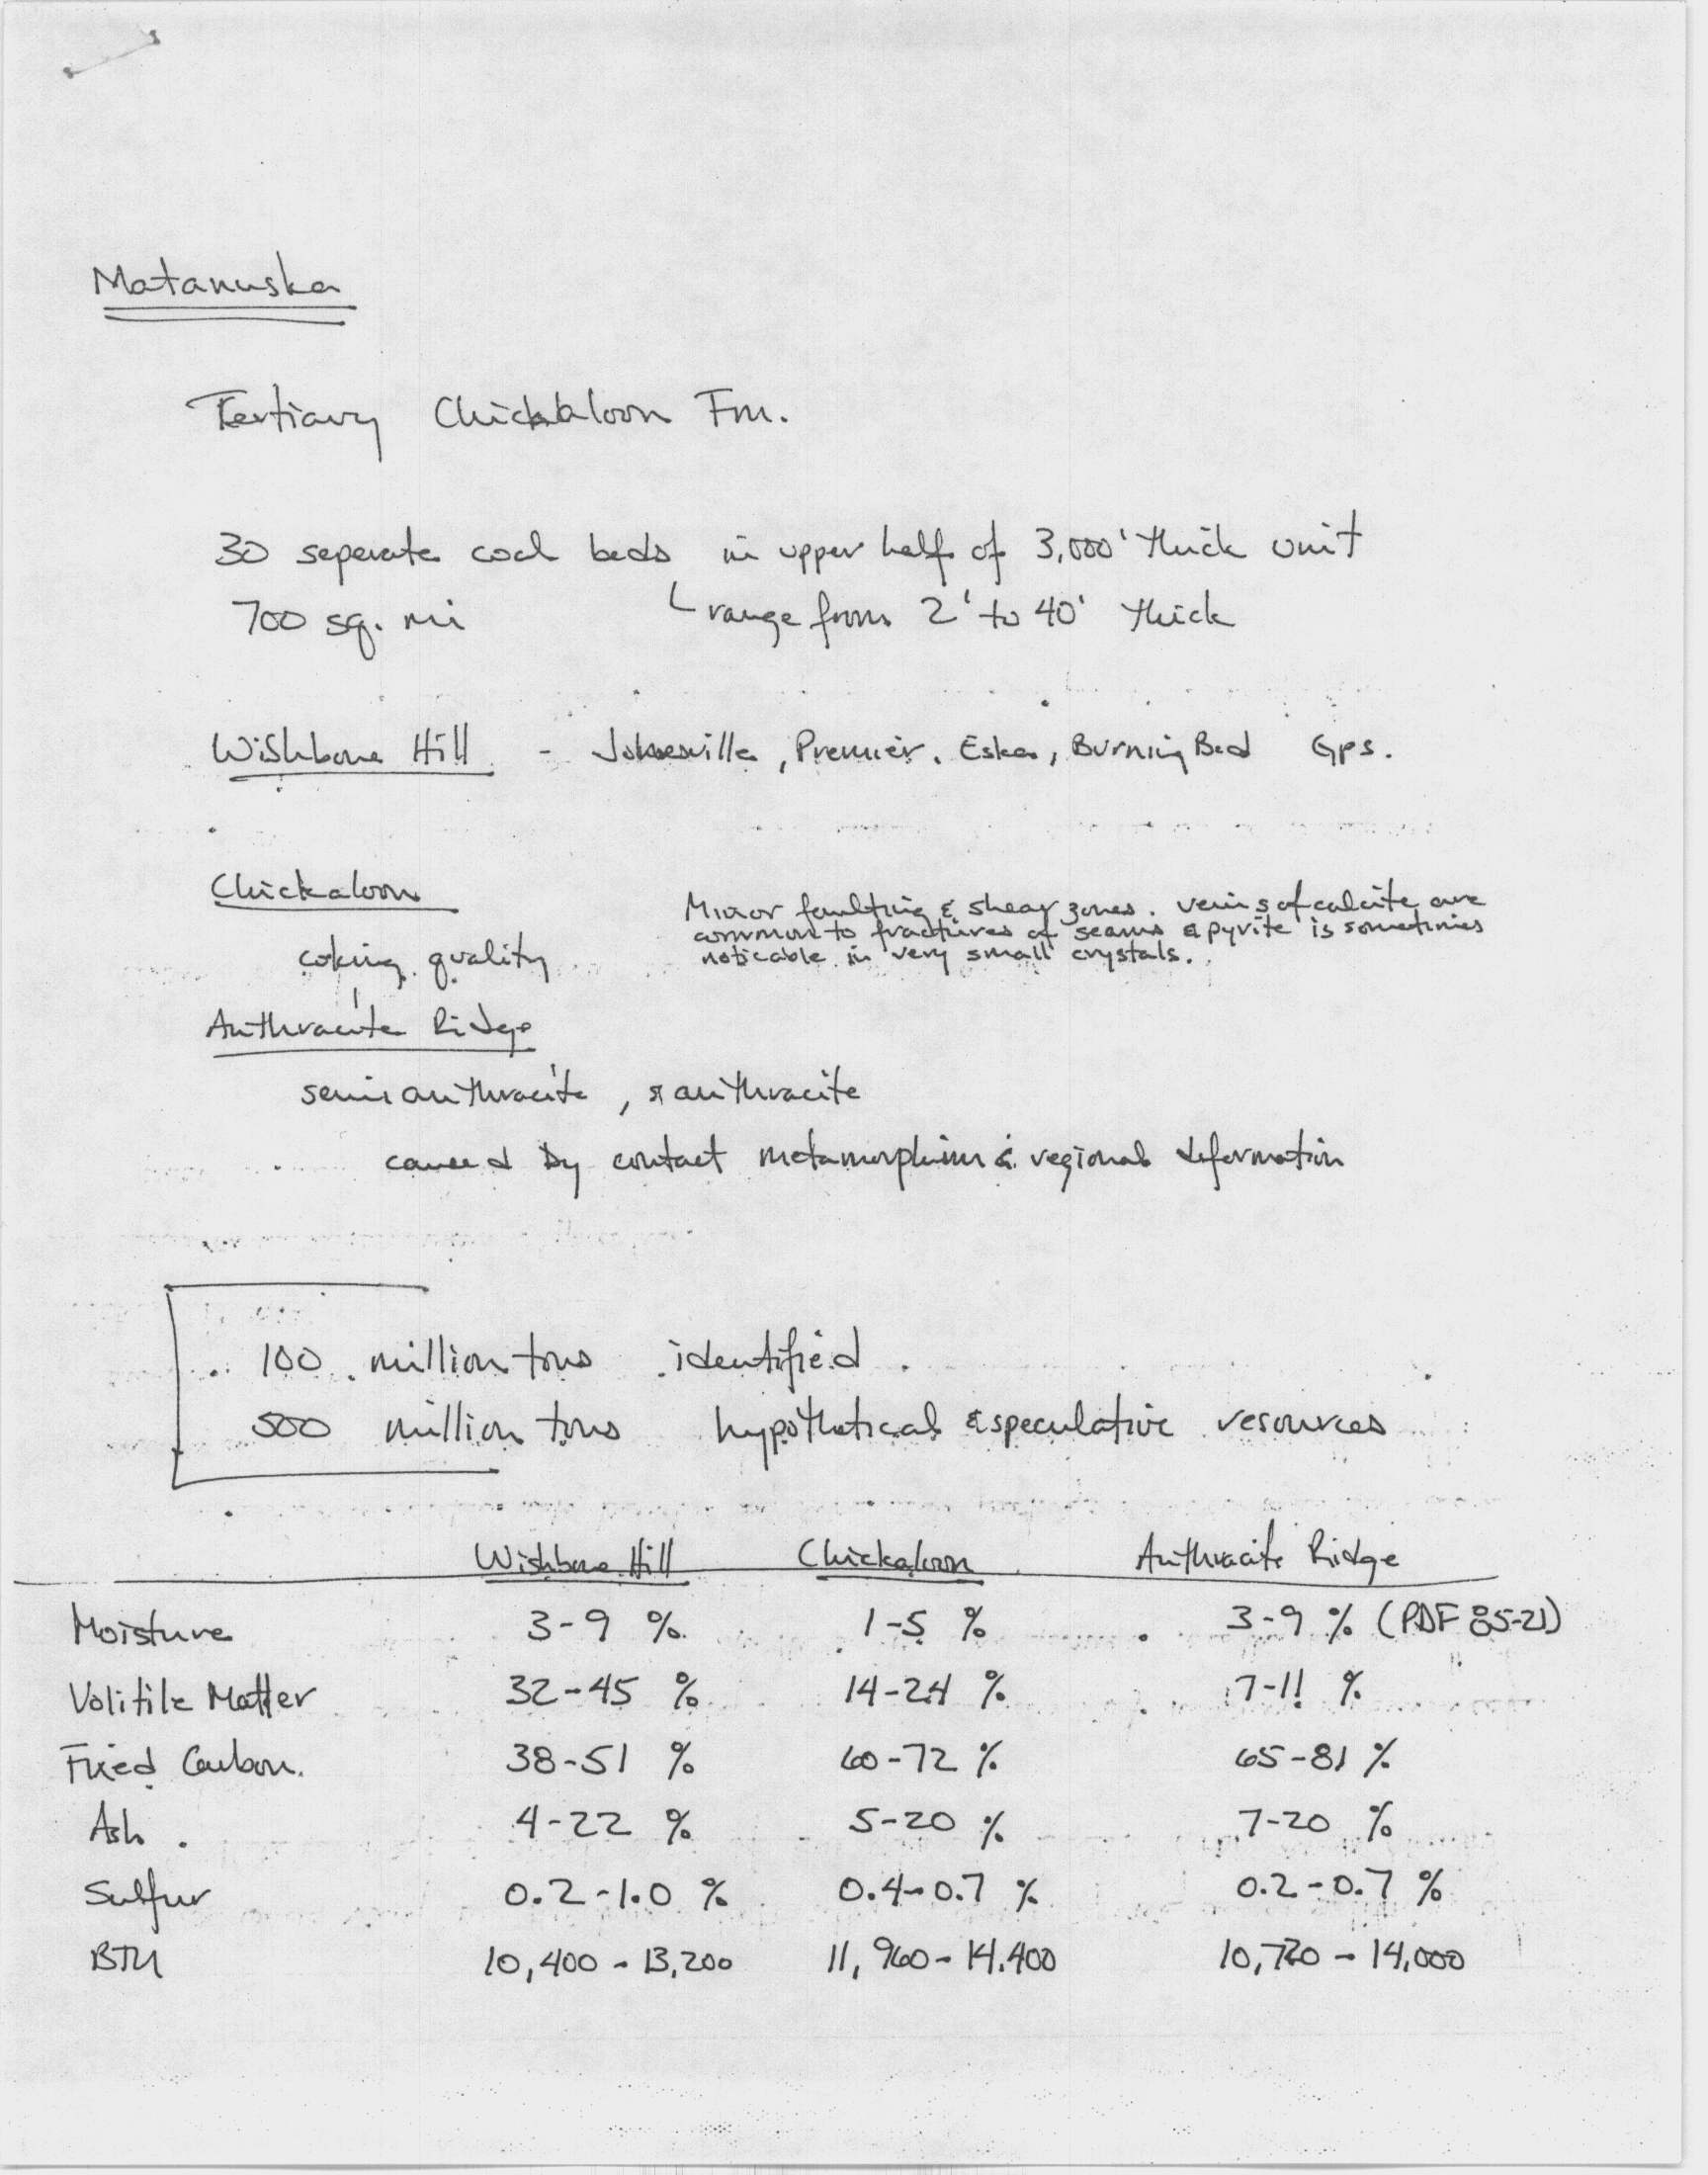 Matanuska
Tertiary Chickaloon Fm.
30 seperate coal beds in upper half of 3,000' thick unit
700 sq. mi range from 2' to 40' thick
Wishbone Hill - Jonesville, Premier, Eska, Burning Bed Gps.
Chickaloon
Minor faulting & shear zones. veins of calcite are
common to fractures of seams & pyrite is sometimes
noticable in very small crystals.
coking quality
Anthracite Ridge
semianthracite, & anthracite
caused by contact metamorphism & regional deformation
100 million tons identified
500 million tons hypothetical & speculative resources
Wishbone Hill Chickaloon Anthracite Ridge
Moisture 3-9 % 1-5 % 3-9 % (PDF 85-21)
Volitile Matter 32-45 % 14-24 % 7-11 %
Fixed Carbon 38-51 % 60-72 % 65-81 %
Ash 4-22 % 5-20 % 7-20 %
Sulfur 0.2-1.0 % 0.4-0.7 % 0.2-0.7 %
BTU 10,400 - 13,200 11,960 - 14,400 10,720 - 14,000